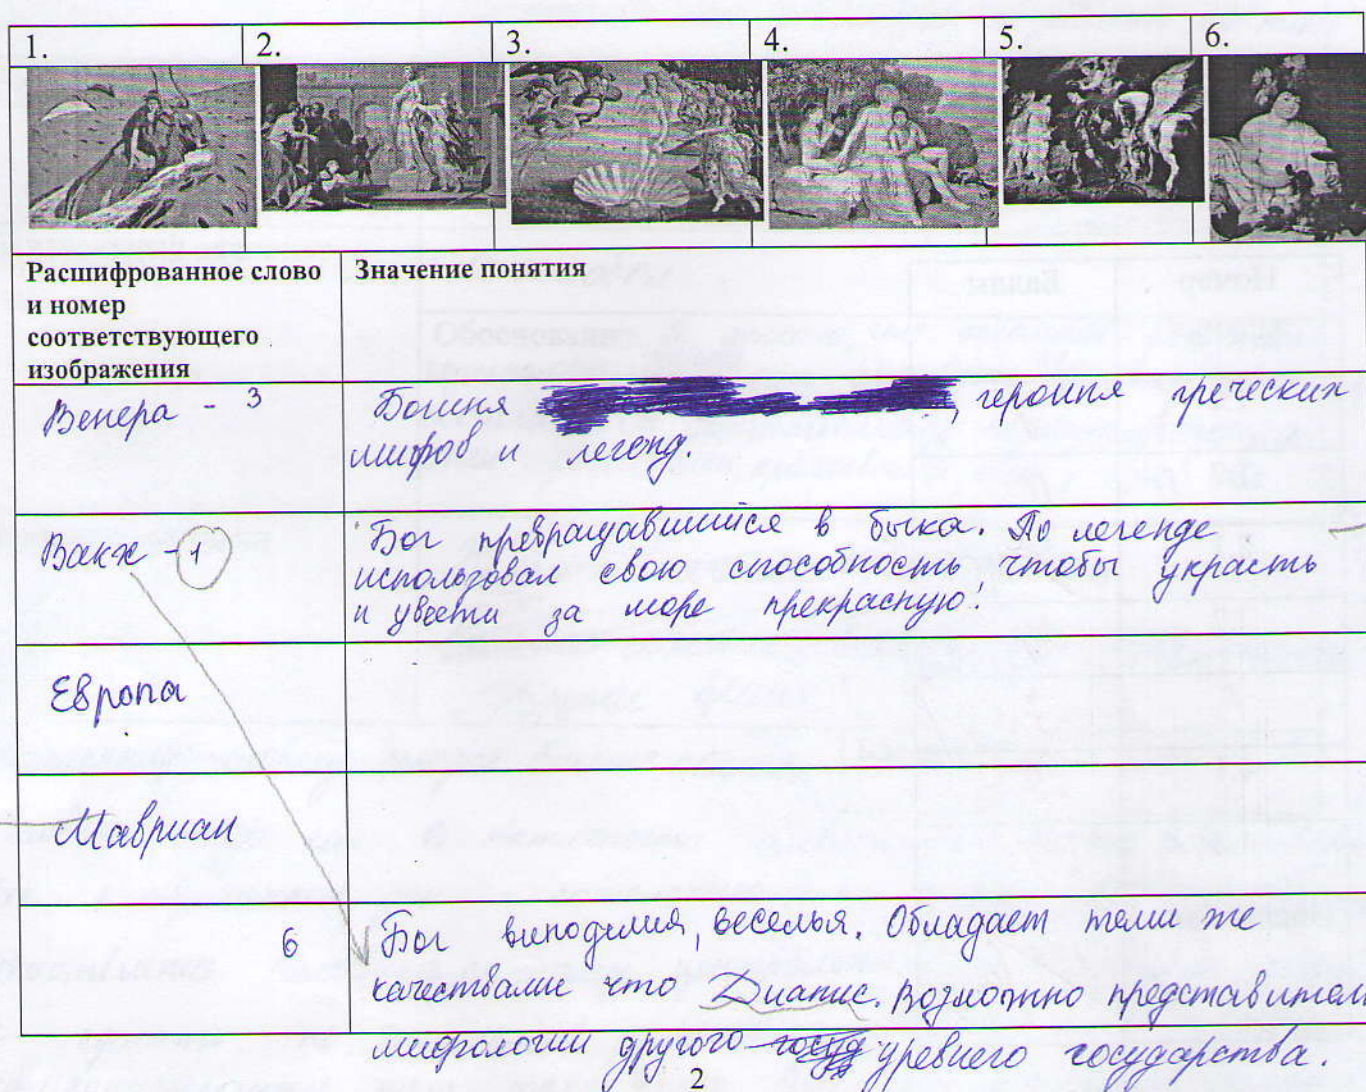 1. 2. 3. 4. 5. 6.
Расшифрованное слово
и номер
соответствующего
изображения
Значение понятия
Венера - 3
Богиня , героиня греческих
мифов и легенд.
Вакх - 1
Бог превращавшийся в быка. По легенде
использовал свою способность, чтобы украсть
и увести за море прекрасную.
Европа
Мавриан
6
Бог виноделия, веселья. Обладает теми же
качествами что Дианис. Возможно представитель
мифологии другого древнего государства.
2